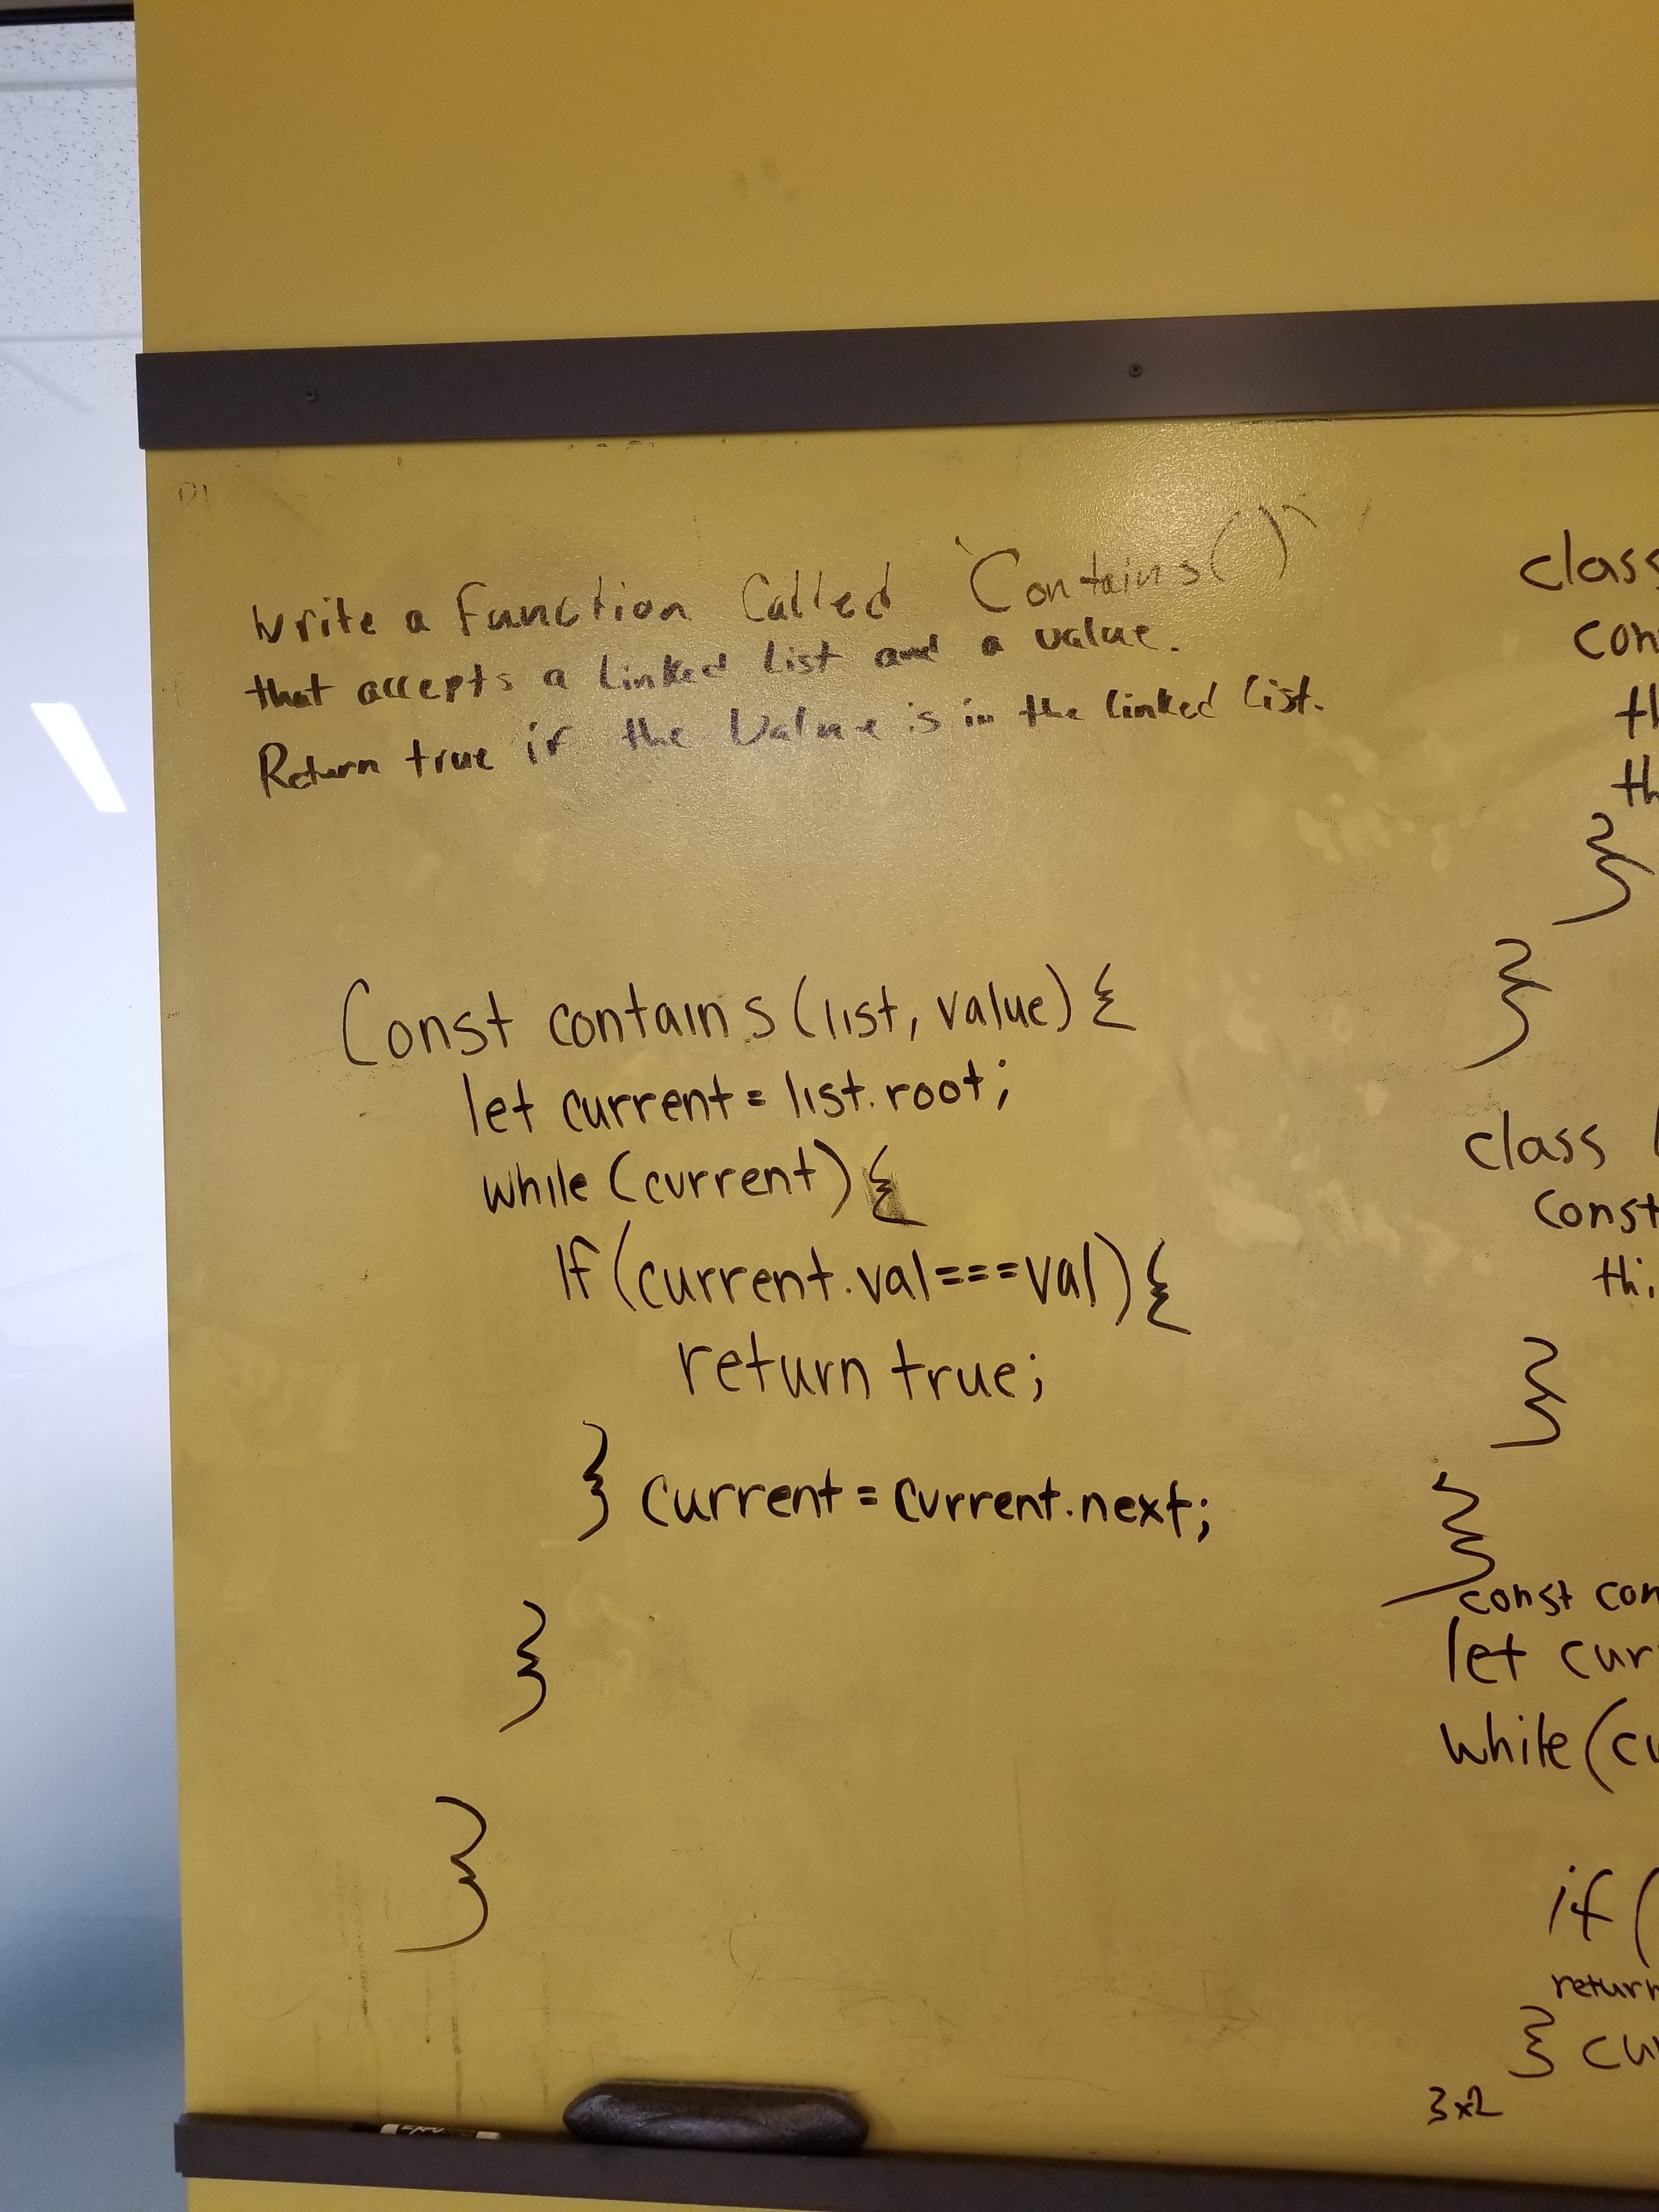 Write a function Called `Contains()`
that accepts a Linked List and a value.
Return true if the Value is in the linked list.
Const contains(list, value){
let current = list.root;
while (current) {
If (current.val===val) {
return true;
} current = current.next;
}
}
class
con
th
th
}
}
class
const
thi
}
}
const con
let cur
while (cu
if (
return
} cu
3x2